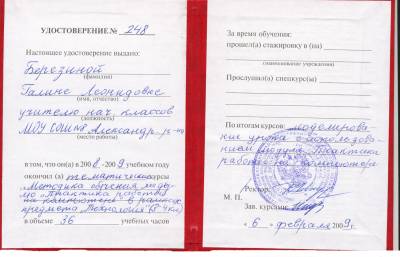 УДОСТОВЕРЕНИЕ № 248
Настоящее удостоверение выдано:
Березиной
(фамилия)
Галине Леонидовне
(имя, отчество)
учителю нач. классов
(должность)
МОУ СОШ №
(место работы)
в том, что он(а) в 2008-2009 учебном году
окончил(а) тематические курсы
„Методика обучения моду-
лю „Практика работы
на компьютере" в рамках
предмета „Технология"
в объеме 36 учебных часов
За время обучения:
прошел(а) стажировку в (на)
(наименование учреждения)
Прослушал(а) спецкурс(ы)
По итогам курсов: моделирова
ние урока с использова-
нием модуля „Практика
работы на компьютере
Ректор:
М. П.
Зав. курсами:
« 6 » февраля 2009 г.